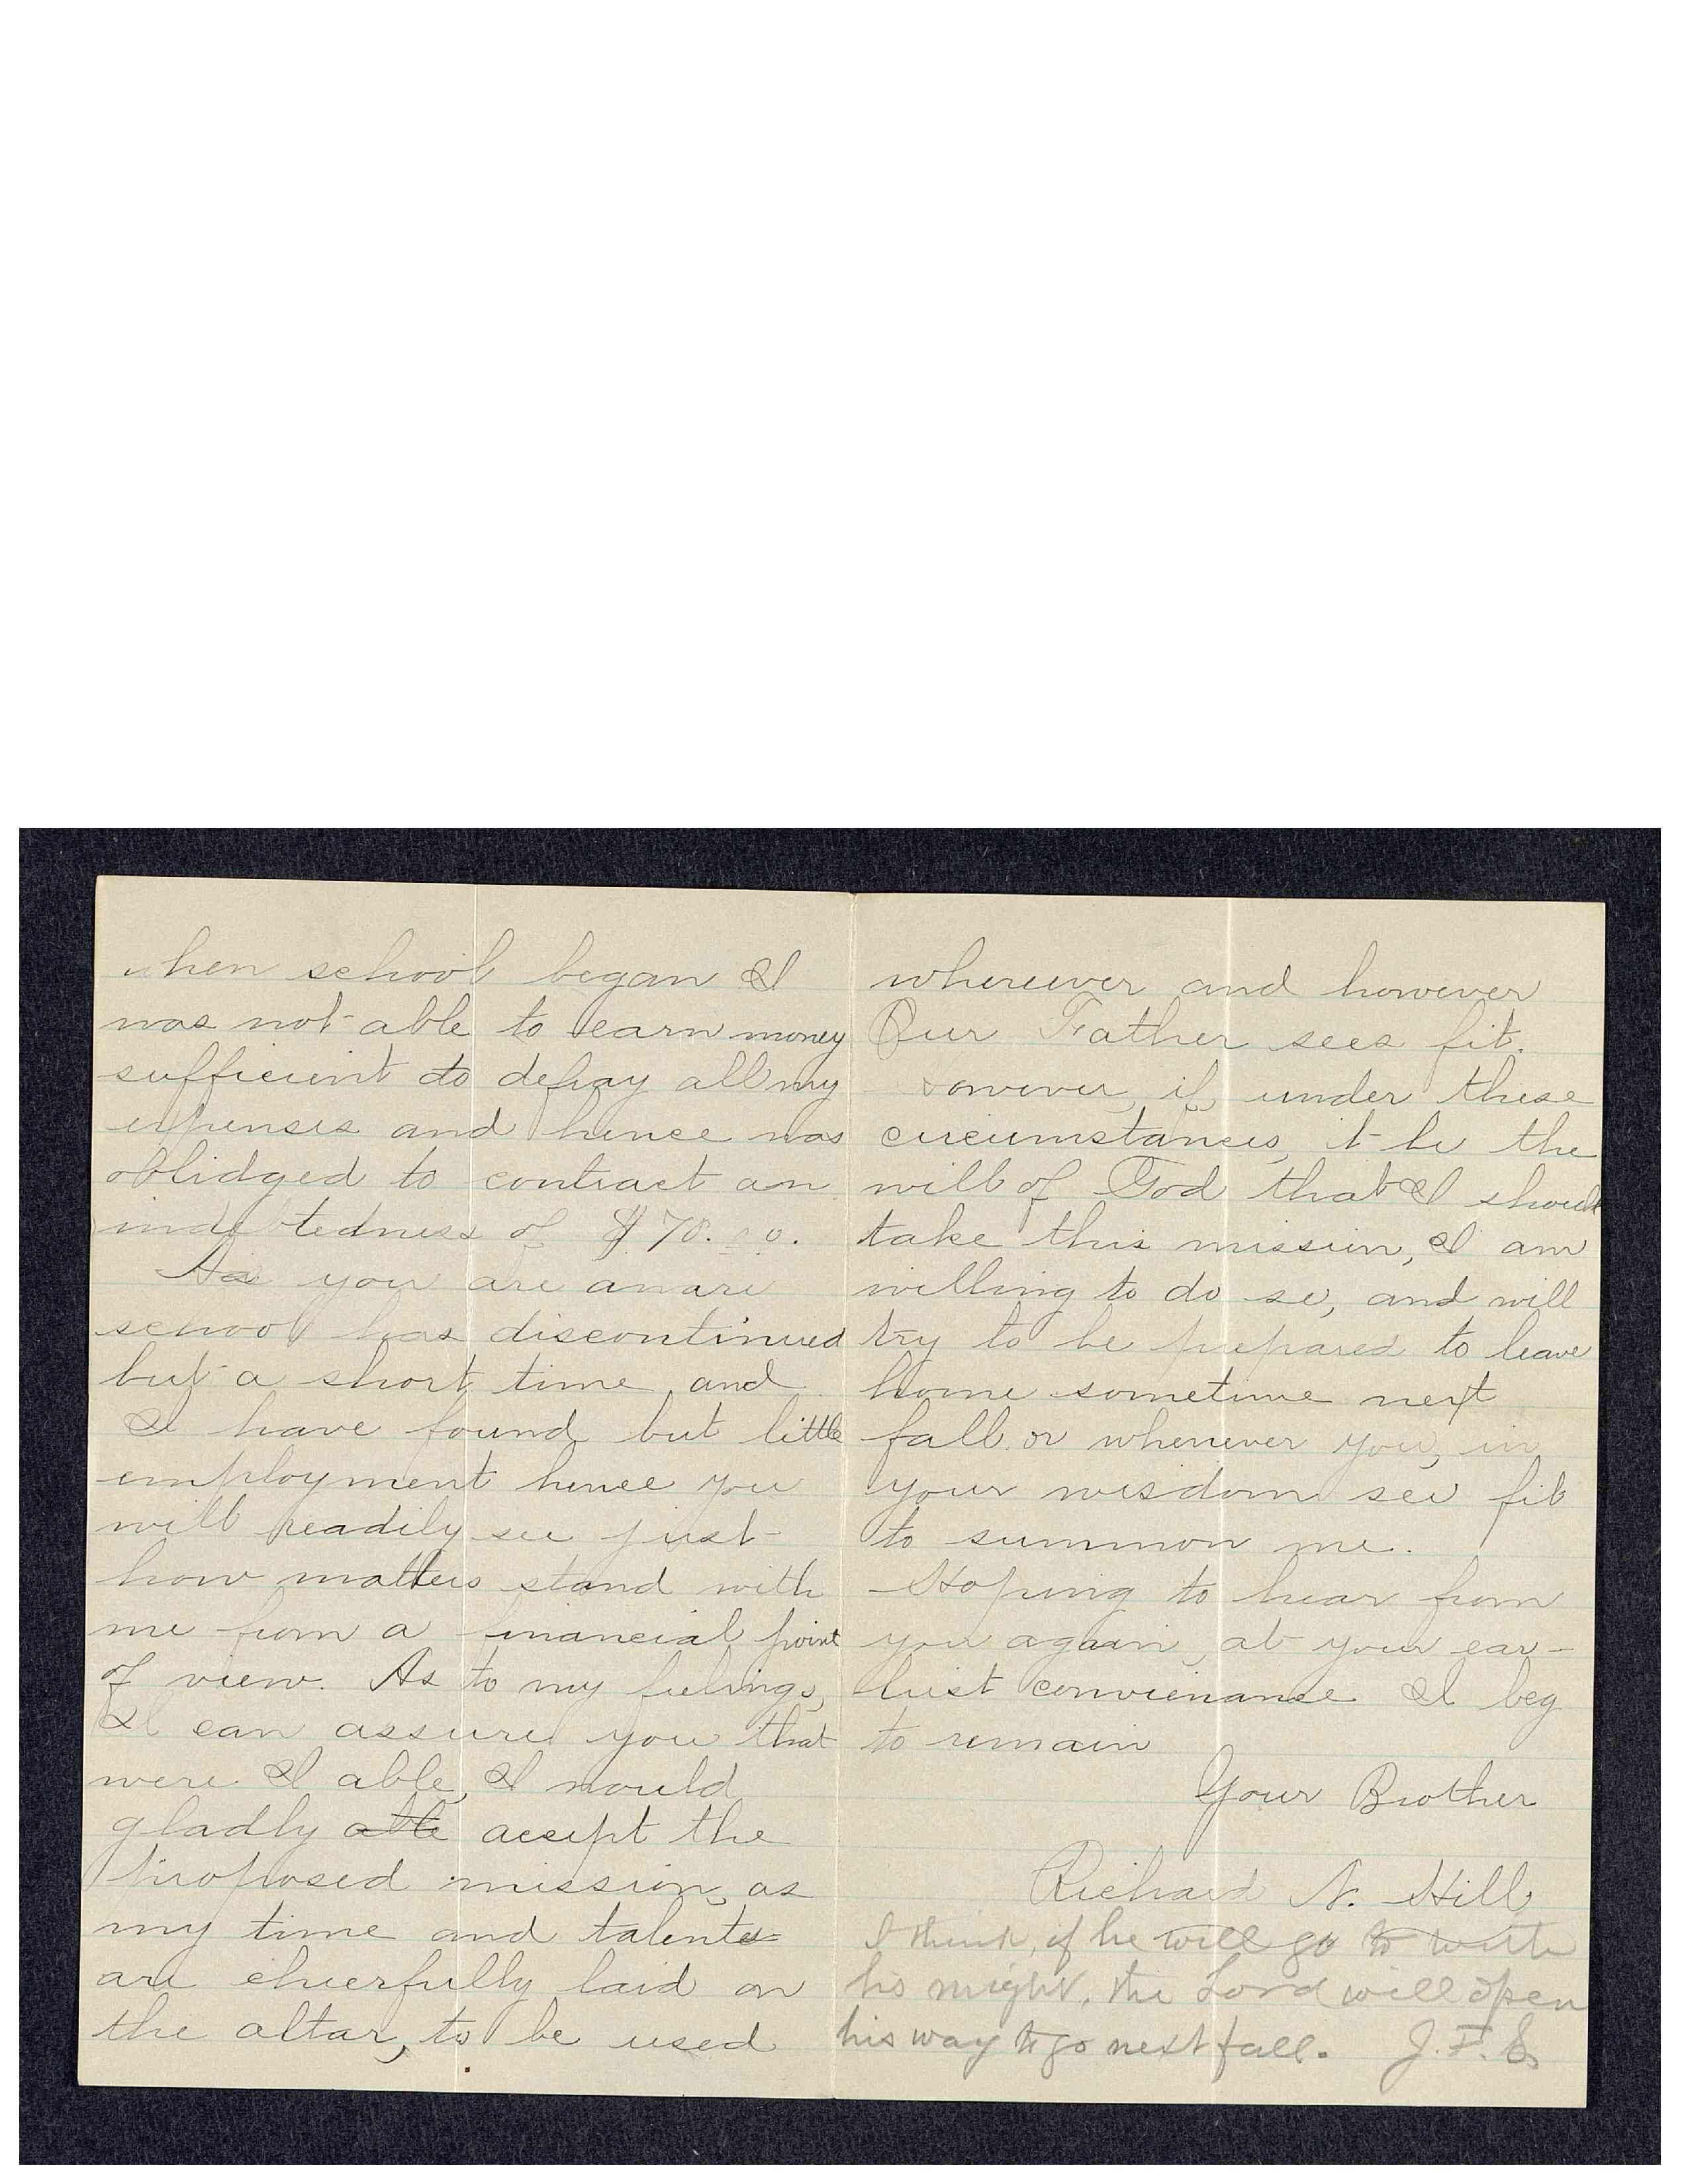 when school began I
was not able to earn money
sufficient to defray all my
expenses and hence was
oblidged to contract an
indebtedness of $70.00.
As you are aware
school has discontinued
but a short time and
I have found but little
employment hence you
will readily see just
how matters stand with
me from a financial point
of view. As to my feelings,
I can assure you that
were I able, I would
gladly able accept the
proposed mission, as
my time and talents
are cheerfully laid on
the altar, to be used
whereever and however
Our Father sees fit.
However, if, under these
circumstances, it be the
will of God that I should
take this mission, I am
willing to do so, and will
try to be prepared to leave
home sometime next
fall or whenever you, in
your wisdom see fit
to summon me.
Hoping to hear from
you again, at your ear-
liest convienance I beg
to remain
Your Brother
Richard N. Hill
I think, if he will go to with
his might, the Lord will open
his way to go next fall. J.F.S.